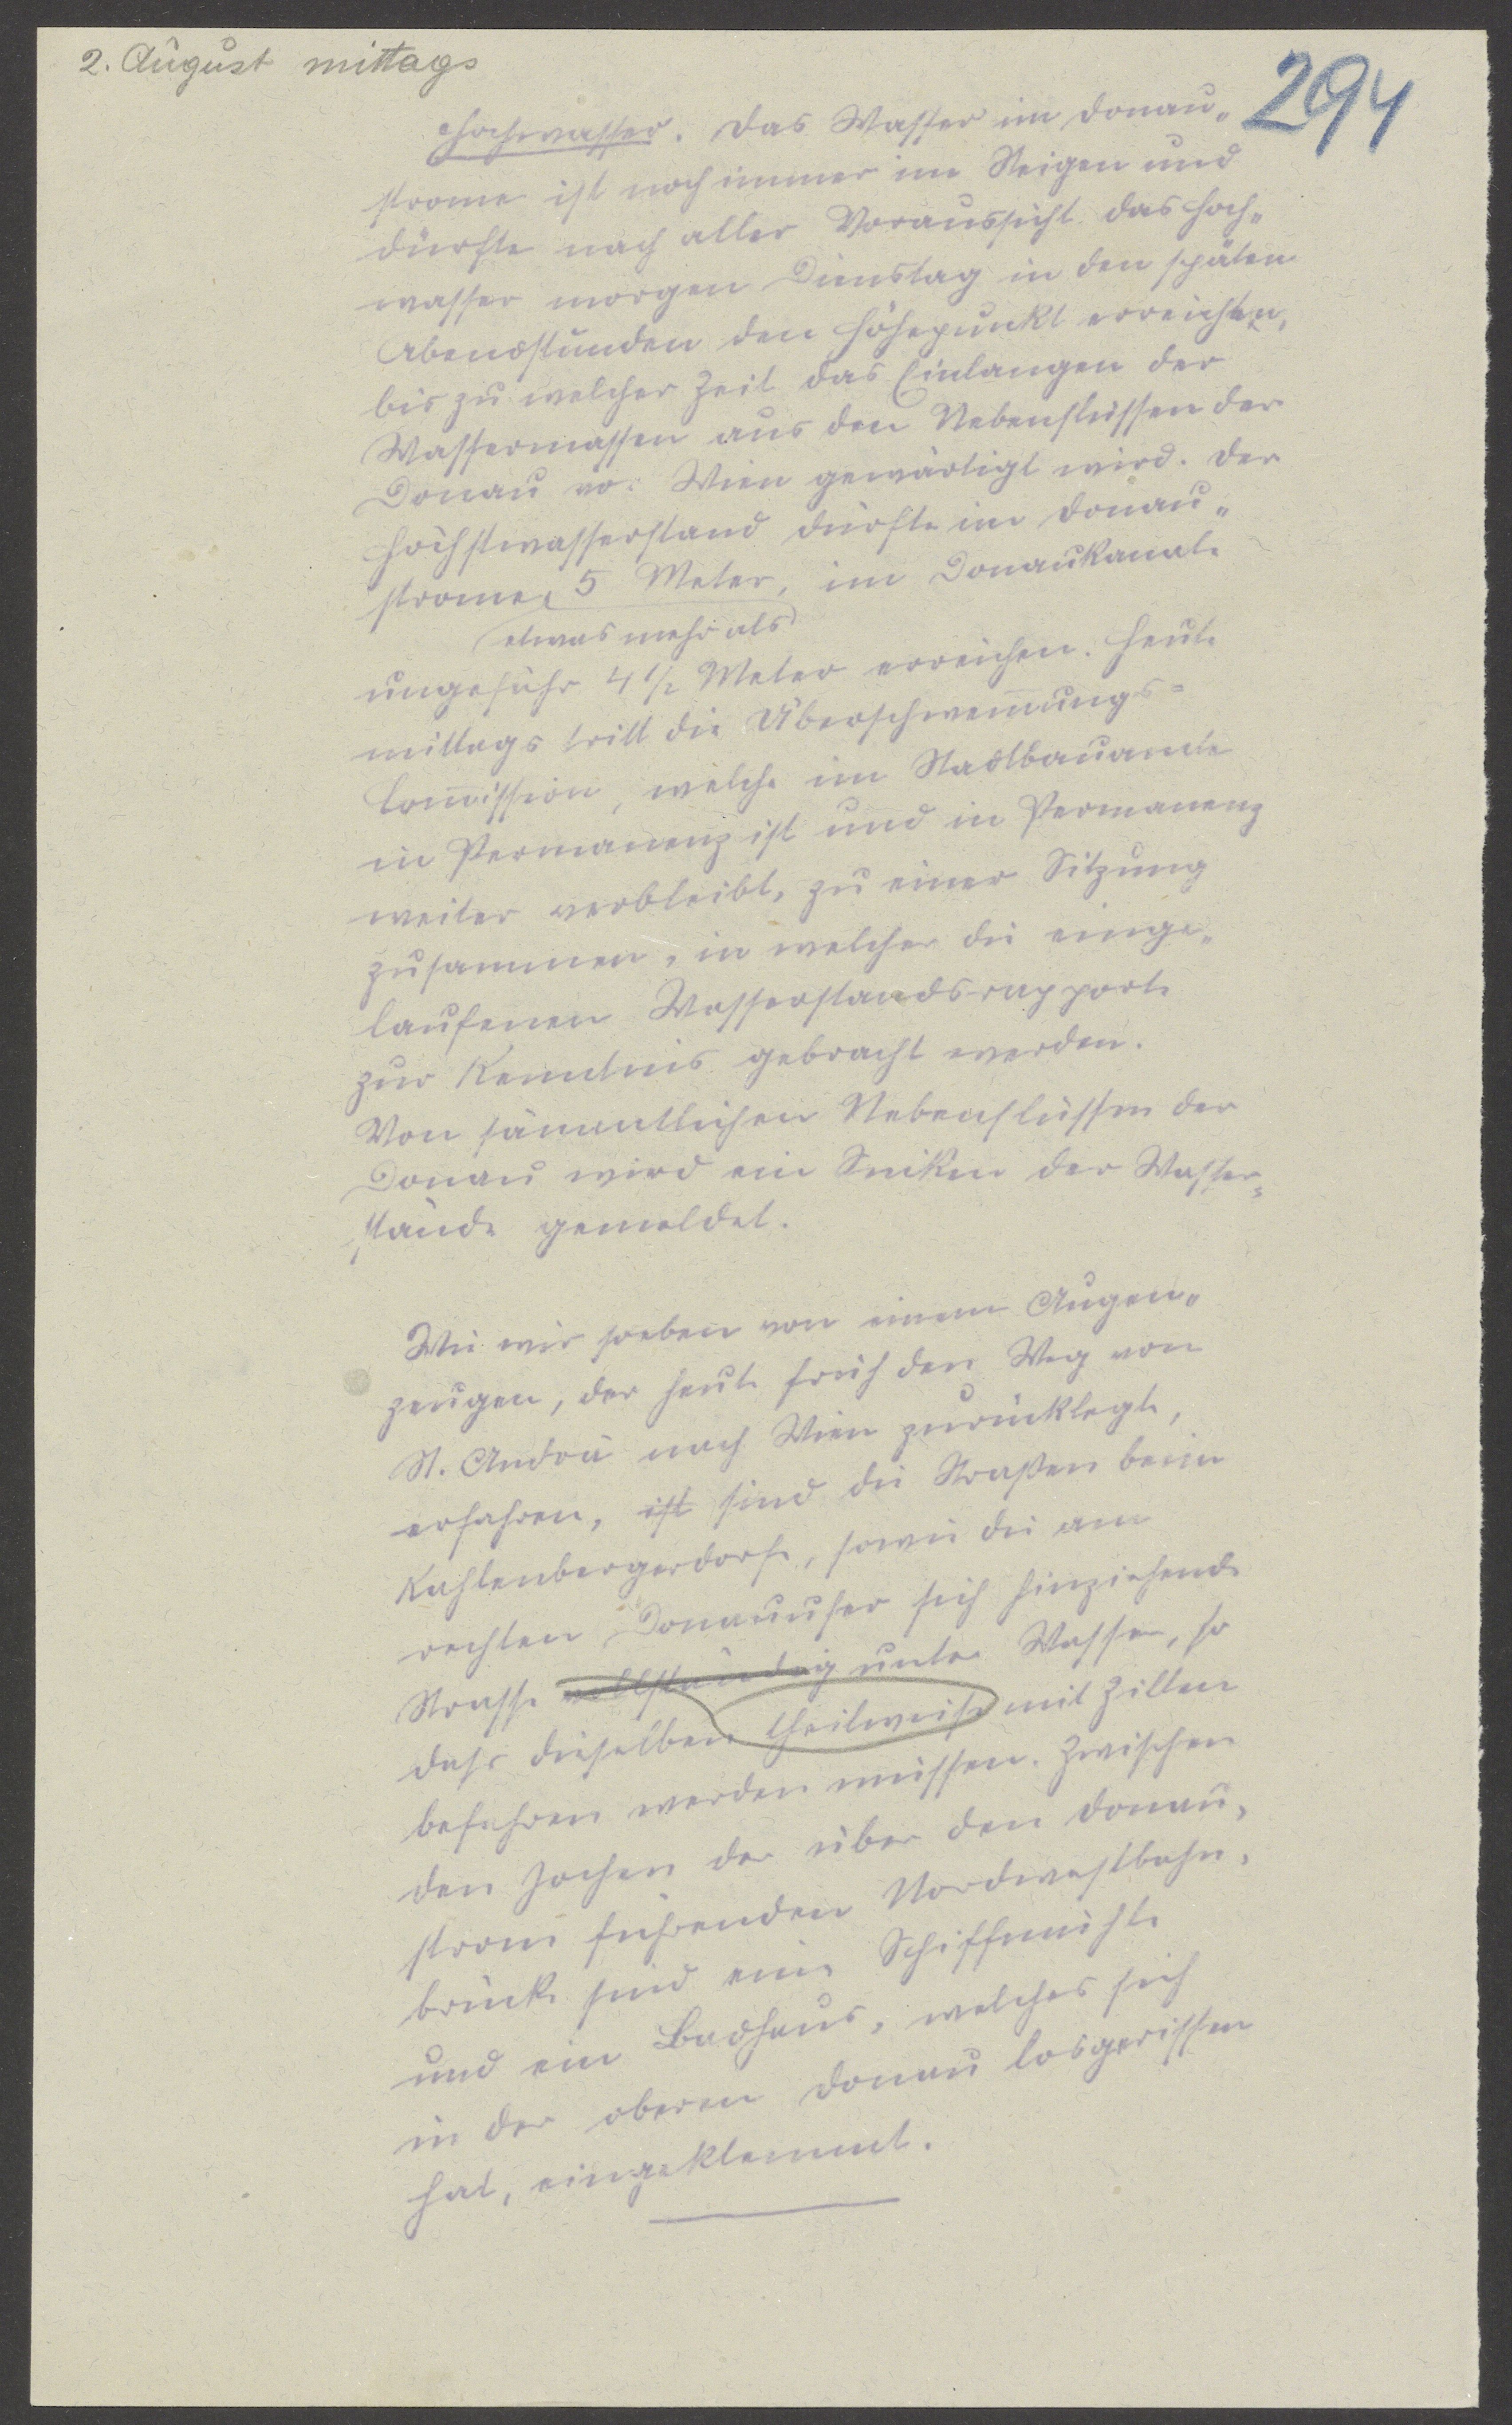 2. August mittags
294
Hochwasser. Das Wasser im Donau„
strome ist noch immer im Steigen und
dürfte nach aller Voraussicht das Hoch„
wasser morgen Dienstag in den späten
Abendstunden den Höhepunkt erreichen,
bis zu welcher Zeit das Einlangen der
Wassermassen aus den Nebenflüssen der
Donau vor Wien gewärtigt wird. Der
Höchstwasserstand dürfte im Donau„
strome 5 Meter, im Donaukanale
etwas mehr als
ungefähr 4 1/2 Meter erreichen. Heute
mittags tritt die Überschwem̅ungs=
Com̅ission, welche im Stadtbauamte
in Permanenz ist und in Permanenz
weiter verbleibt, zu einer Sitzung
zusammen, in welcher die einge„
laufenen Wasserstandsrapporte
zur Kenntnis gebracht werden.
Von sämmtlichen Nebenflüssen der
Donau wird ein Sinken der Wasser=
stände gemeldet.
Wie wir soeben von einem Augen„
zeugen, der heute früh den Weg von
St. Andrä nach Wien zurücklegte,
erfahren, ist sind die Straßen beim
Kahlenbergerdorfe, sowie die am
rechten Donauufer sich hinziehende
Strasse vollständig unter Wasser, so
dass dieselben theilweise mit Zillen
befahren werden müssen. Zwischen
den Jochen der über den Donau„
strom führenden Nordwestbahn„
brücke sind eine Schiffmühle
und ein Badhaus, welches sich
in der oberen Donau losgerissen
hat, eingeklemmt.